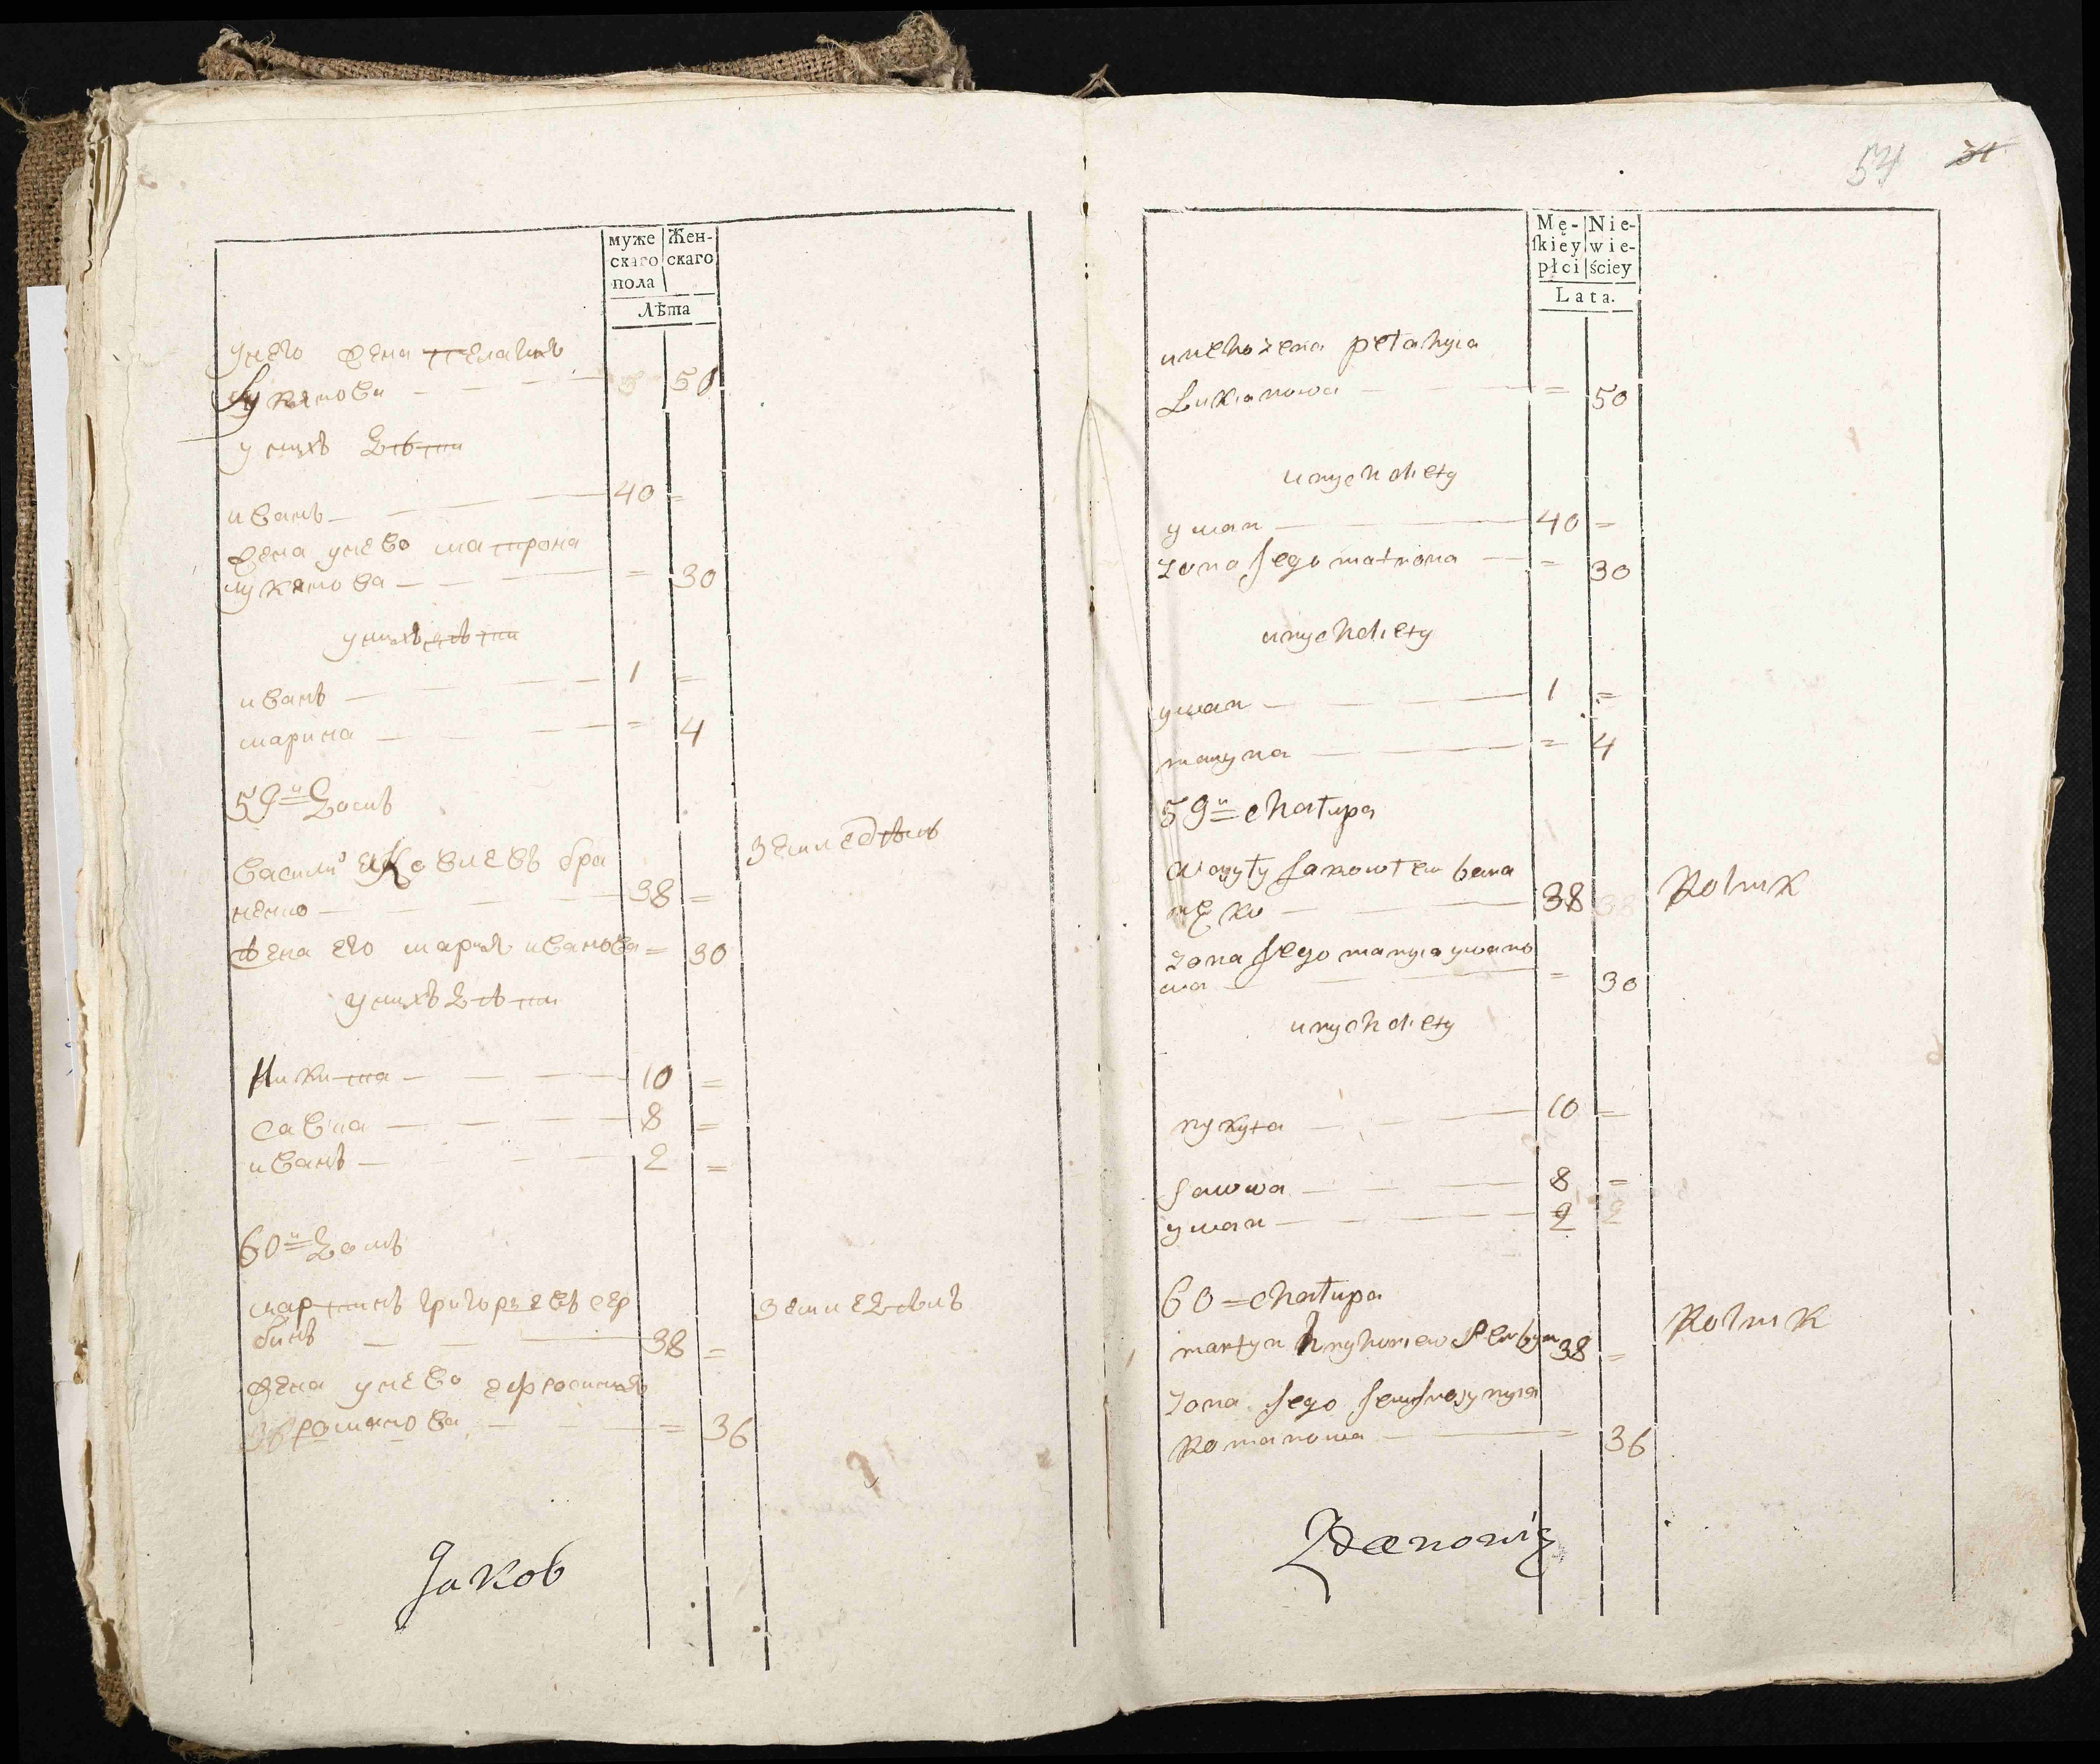 муже
скаго
пола
Жен-
скаго
Лѣта
унего жена пелагия
Лукянова — 50
у нихъ дѣти
иванъ — 40 =
жена унево матрона
лукянова — = 30
унихъ дѣти
иванъ — 1 =
марина — = 4
59й домъ
василий яковлевъ бра
ненко — 38 =
земледѣлъ
жена его мария иванова = 30
унихъ дѣти
Никита — 10 =
савва — 8 =
иванъ — 2 =
60й домъ
мартинъ григоревъ сер
бинъ — 38 =
земледѣлъ
жена унево ефросиния
романова — = 36
Jakob
54 54
Mę-
ſkiey
płci
Nie-
wie-
ściey
Lata.
uneho żena pełahyia
Łukianowa — = 50
unych diety
ywan — 40 =
zona jego matrona — = 30
unych diety
ywan — 1 =
maryna — = 4
59u chałupa
Wasyły Jakowłew bara
nęko — 38
Rolnik
zona jego maryia ywano
wa — = 30
unych diety
nykyta — 10 =
sawwa — 8 =
ywan — 2
60 = chałupa
martyn hryhoriew Serbyn 38 =
Rolnik
zona jego jewfrosynyia
Romanowa — = 36
Zdanowiz